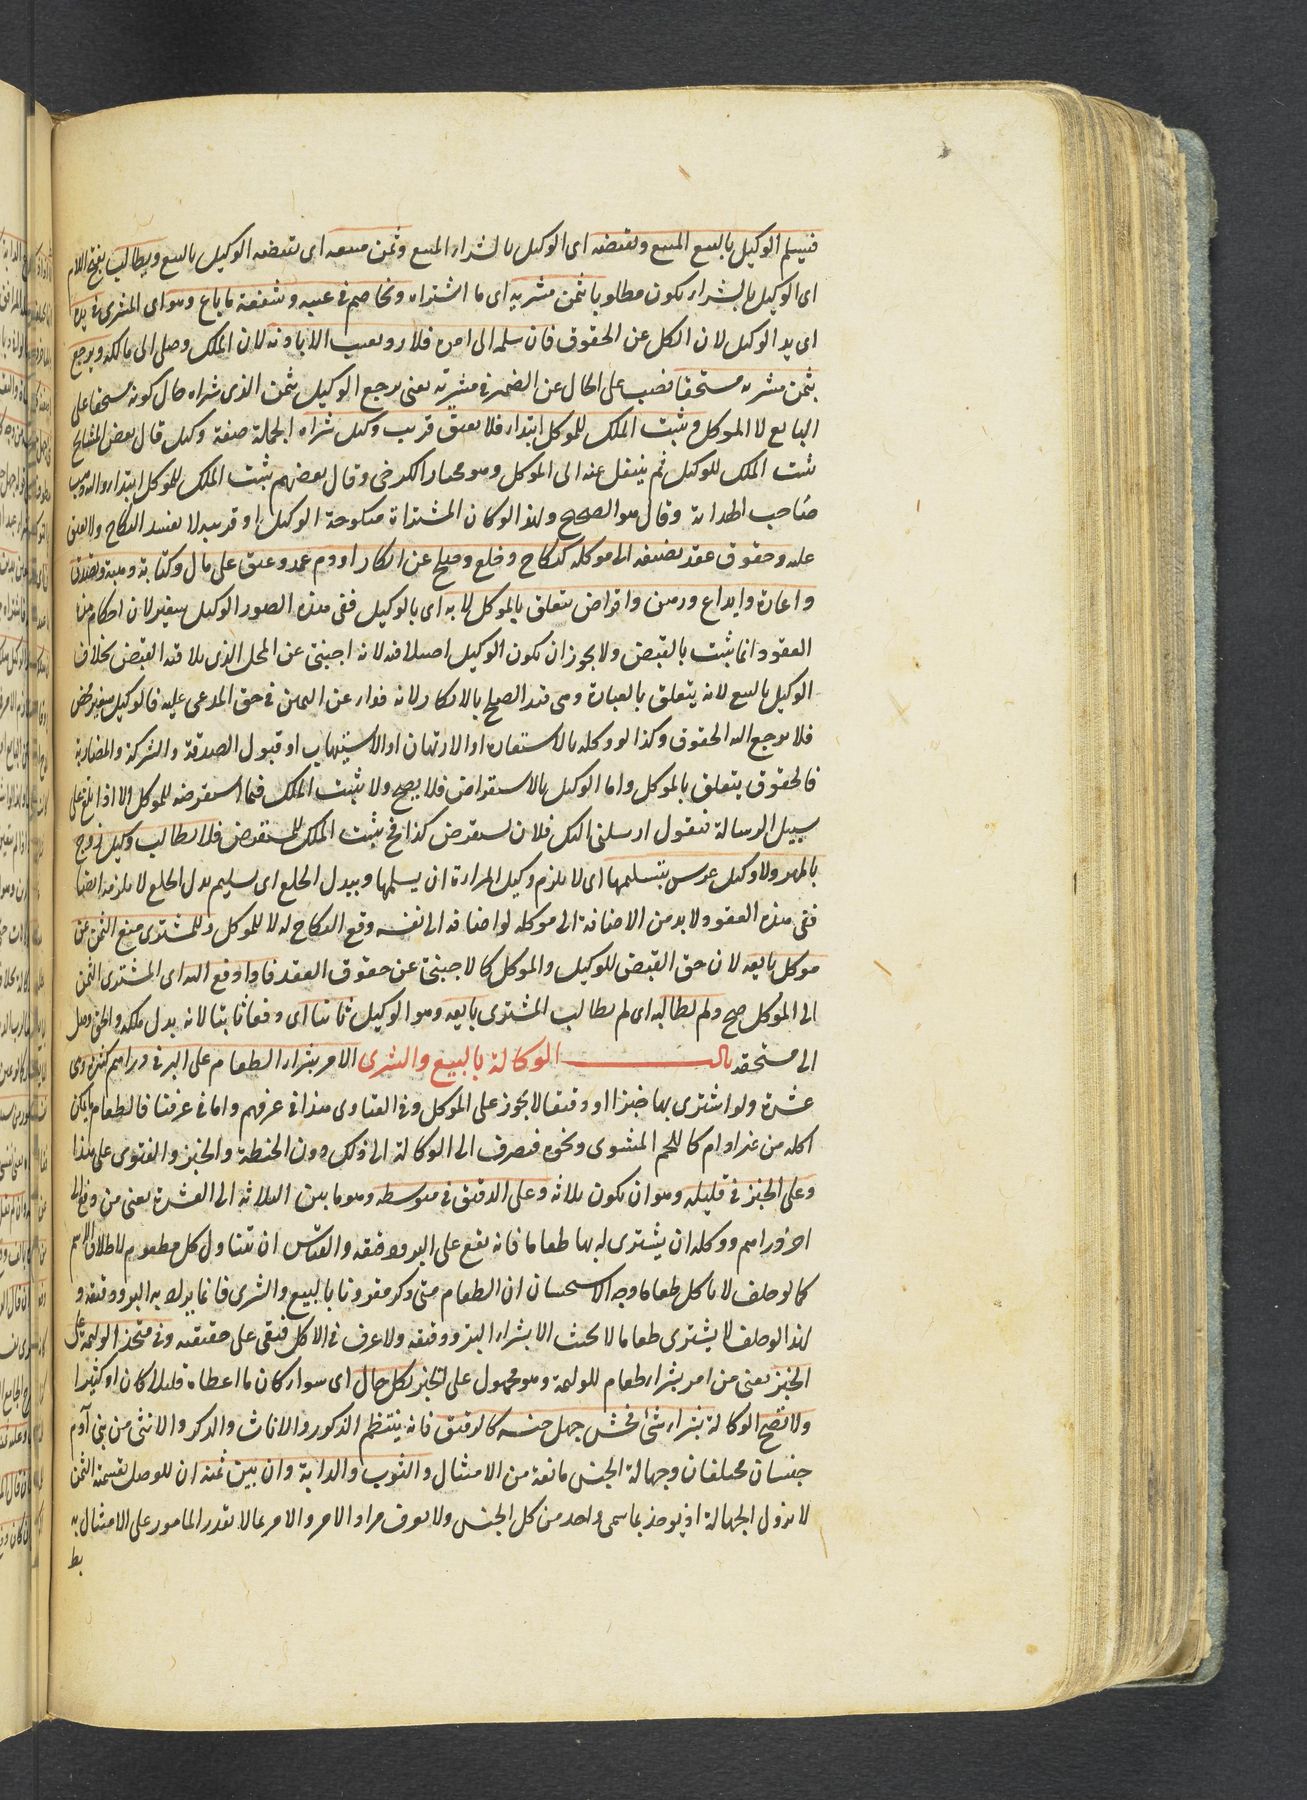 فيسلم الوكيل بالبيع المبيع ويقبضه اى الوكيل بالشراء المبيع وثمن مبيعه اى يقبضه الوكيل بالبيع ويطالب بفتح اللام
اى الوكيل بالشراء يكون مطلوبا بثمن مشريه اى ما اشتراه ويخاصم فى عيبه وشفعة ما باع وهو اى المشرى فى يده
اى يد الوكيل لان الكل عن الحقوق فان سلمه الى امره فلا رد بعيب الا باذنه لان الملك وصل الى مالكه ويرجع
بثمن مشريه مستحقا نصب على الحال عن الضمير فى مشريه يعنى يرجع الوكيل بثمن الذى شراه حال كونه مستحقا على
البايع لا الموكل وثبت الملك للموكل ابتداء فلا يعتق قريب وكيل شراه الجملة صفة وكيل قال بعض المشايخ
يثبت الملك للوكيل ثم ينتقل عنه الى الموكل وهو مختار الكرخى وقال بعضهم يثبت الملك للموكل ابتداء واليه ذهب
صاحب الهداية وقال هو الصحيح ولهذا لو كان المشتراة منكوحة الوكيل او قريبه لا يفسد النكاح ولا يعتق
عليه وحقوق عقد يضيفه الى موكله كنكاح وخلع وصلح عن انكار او دم عمد وعتق على مال وكتابة وهبة وتصدق
واعارة وايداع ورهن واقراض يتعلق بالموكل لا به اى بالوكيل ففى هذه الصور الوكيل سفير لان احكام هذه
العقود انما يثبت بالقبض ولا يجوز ان يكون الوكيل اصيلا فيه لانه اجنبى عن المحل الذى يلاقيه القبض بخلاف
الوكيل بالبيع لانه يتعلق بالعبارة وهى فيه الصلح بالانكار لانه فداء عن اليمين فى حق المدعى عليه فالوكيل سفير محض
فلا يرجع اليه الحقوق وكذا لو وكله بالاستعارة او الارتهان او الاستيهاب او قبول الصدقة والشركة والمضاربة
فالحقوق يتعلق بالموكل واما الوكيل بالاستقراض فلا يصح ولا يثبت الملك فيما استقرضه للموكل الا اذا بلغ على
سبيل الرسالة فيقول ارسلنى اليك فلان يستقرض كذا فح يثبت الملك للمستقرض فلا يطالب وكيل زوج
بالمهر ولا وكيل عرس بتسليمها اى لا يلزم وكيل المراءة ان يسلمها وببدل الخلع اى تسليم بدل الخلع لا يلزمه ايضا
ففى هذه العقود لا بد من الاضافة الى موكله لو اضافه الى نفسه وقع النكاح له لا للموكل وللمشترى منع الثمن عن
موكل بايعه لان حق القبض للوكيل والموكل كالاجنبى عن حقوق العقد فاذا دفع اليه اى المشترى الثمن
الى الموكل صح ولم يطالبه اى لم يطالب المشترى بايعه وهو الوكيل ثانيا اى دفعا ثانيا لانه بدل ملكه والحق وصل
الى مستحقه باب الوكالة بالبيع والشرى الامر بشراء الطعام على البر فى دراهم كثيرة وهى
عشرة ولو اشترى بها خبزا او دقيقا لا يجوز على الموكل وفى الفتاوى هذا فى عرفهم واما فى عرفنا فالطعام ما يمكن
اكله من غير ادام كاللحم المشوى ونحوه فتصرف الى الوكالة الى ذلك دون الحنطة والخبز والفتوى على هذا
وعلى الخبز فى قليله وهو ان يكون ثلاثة وعلى الدقيق فى متوسطه وهو ما بين الثلاثة الى العشرة يعنى من دفع الى
اخر دراهم ووكله ان يشترى له بها طعاما فانه يقع على البر ودقيقه والقياس ان يتناول كل مطعوم لاطلاق الاسم
كما لو حلف لا ياكل طعاما وجه الاستحسان ان الطعام متى ذكر مقرونا بالبيع والشرى فانما يراد به البر ودقيقه و
لهذا لو حلف لا يشترى طعاما لا يحنث الا بشراء البر ودقيقه ولا عرف فى الاكل فبقى على حقيقته وفى متخذ الوليمة على
الخبز يعنى من امر بشراء طعام للوليمة وهو محمول على الخبز بكل حال اى سواء كان ما اعطاه قليلا كان او كثيرا
ولا تصح الوكالة بشراء شئ فحش جهل جنسه كالرقيق فانه ينتظم الذكور والاناث والذكر والانثى من بنى آدم
جنسان مختلفان وجهالة الجنس مانعة من الامتثال والثوب والدابة وان بين ثمنه ان للوصل بقيمة الثمن
لا تزول الجهالة اذ يوجد بما سمى واحد من كل الجنس ولا يعرف مراد الامر والامر بما لا يقدر المامور على الامتثال به
بط